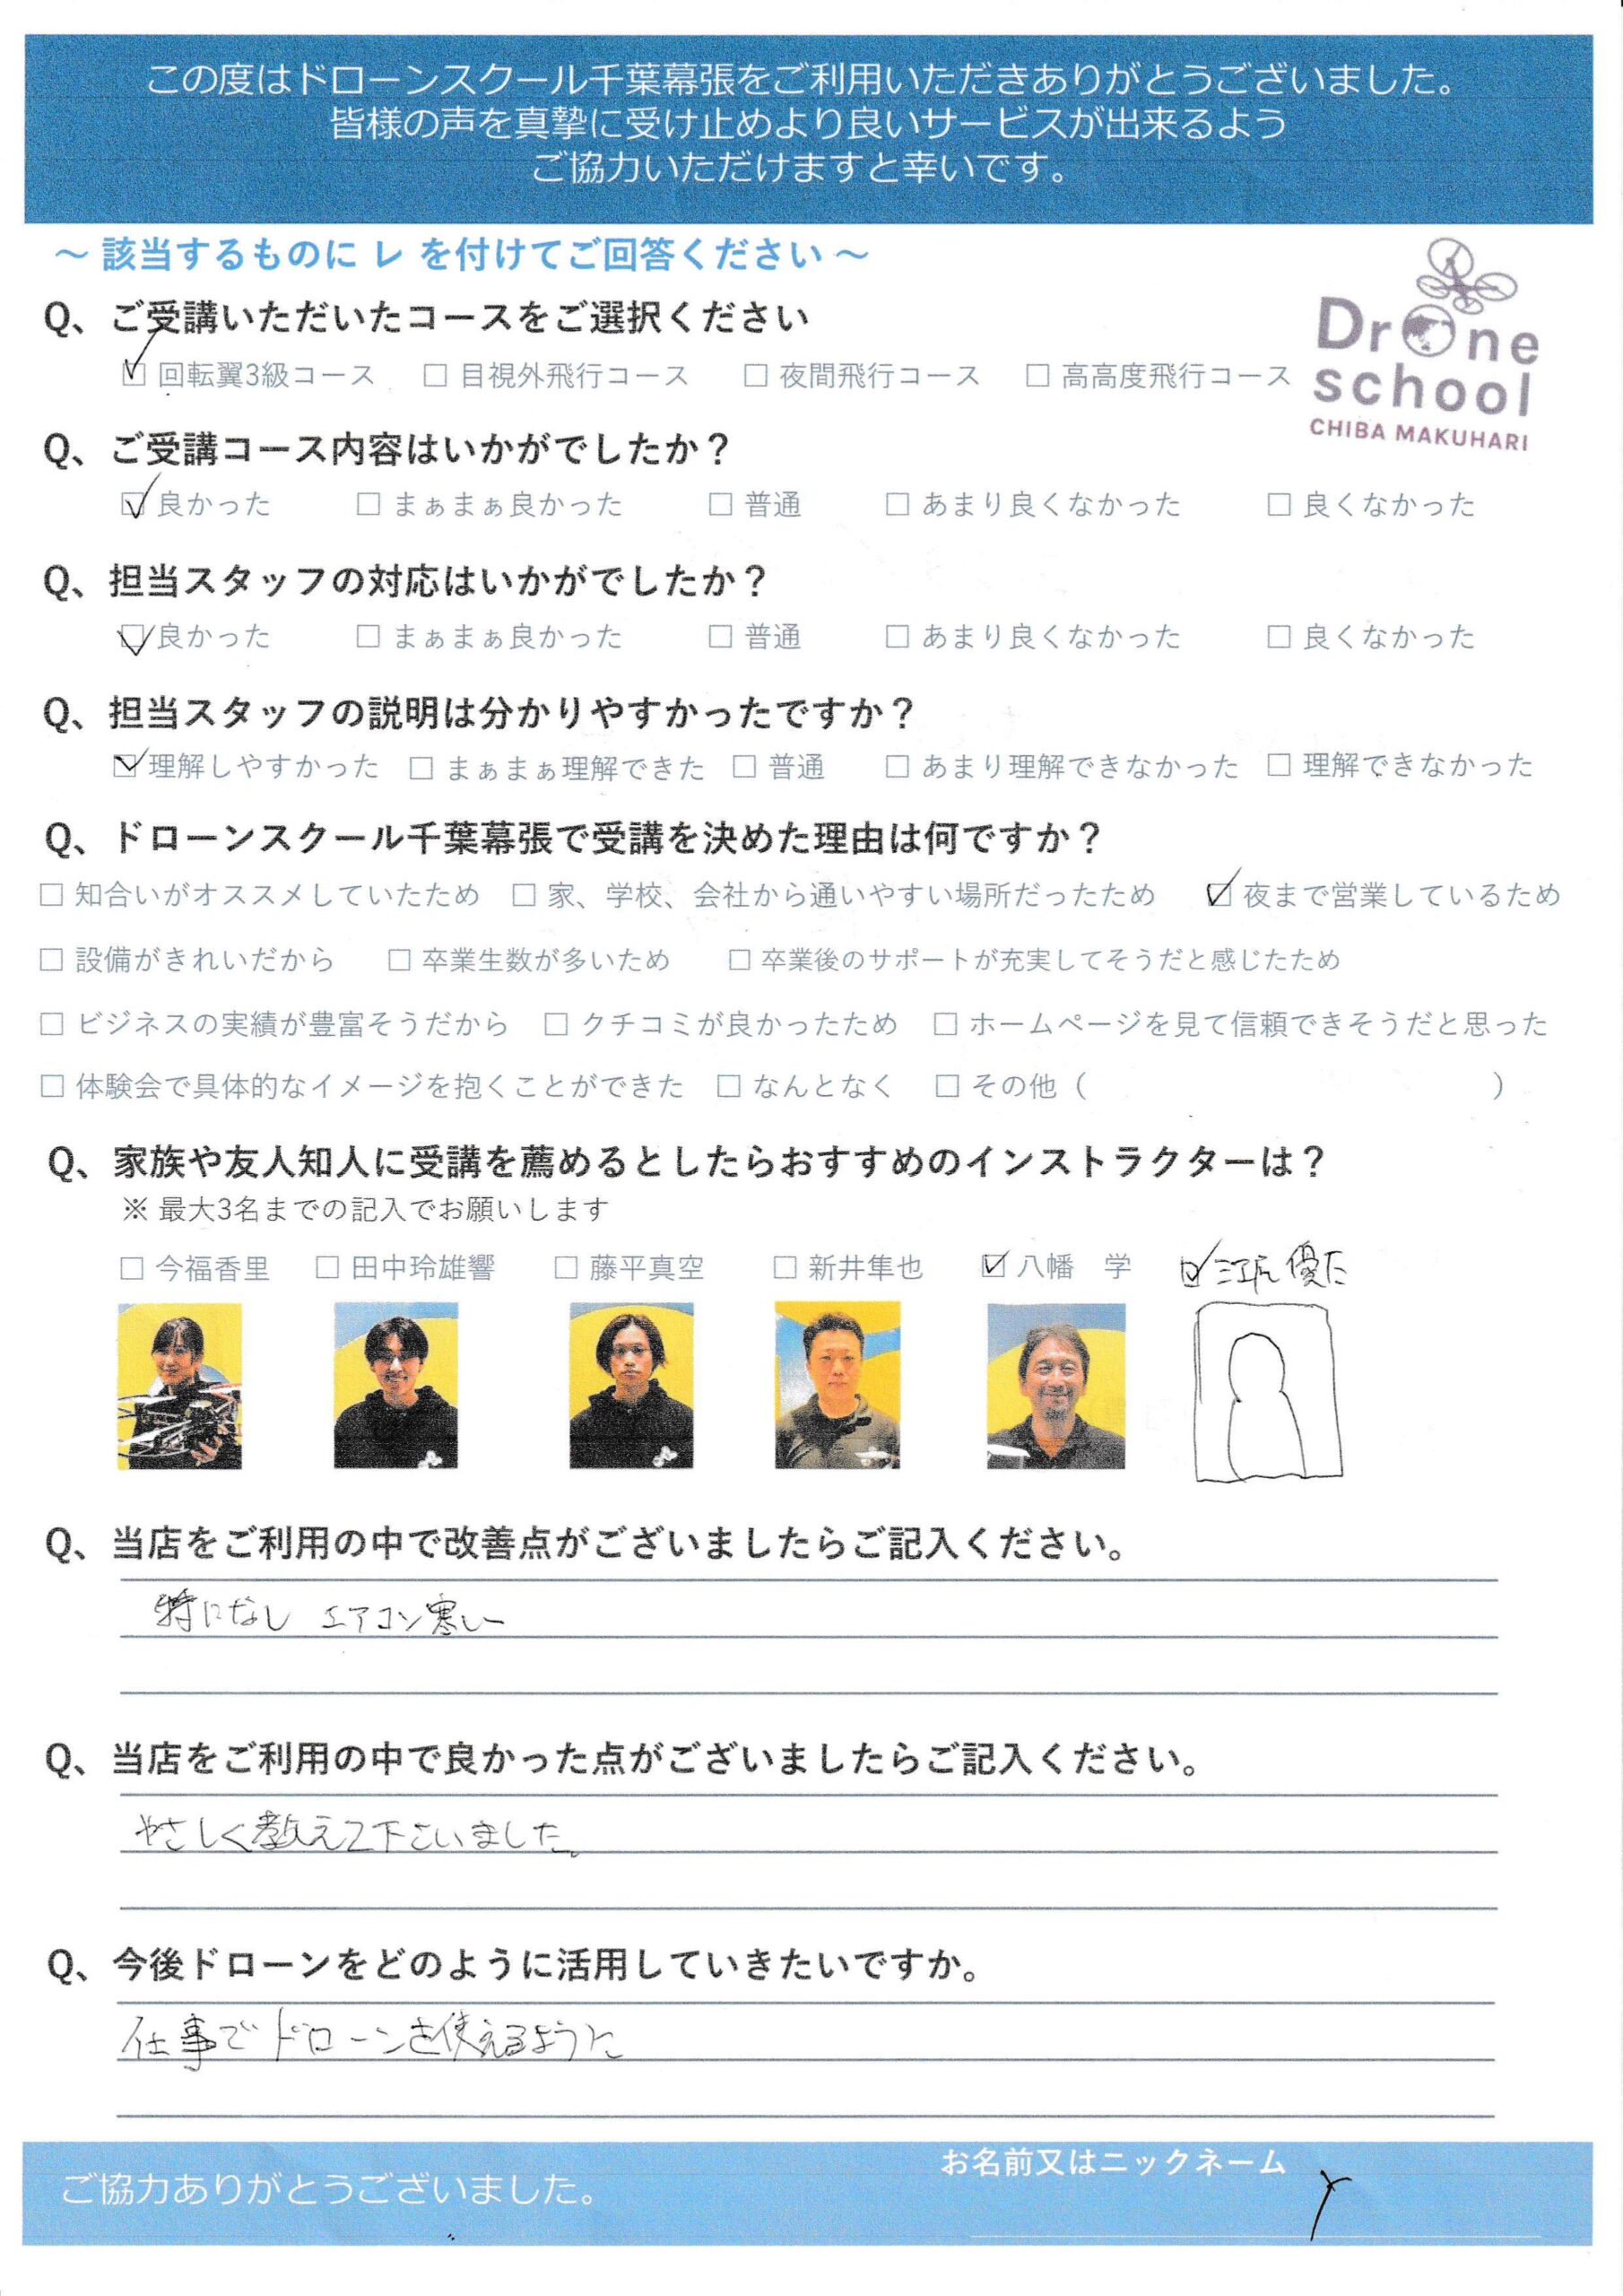 この度はドローンスクール千葉幕張をご利用いただきありがとうございました。
皆様の声を真摯に受け止めより良いサービスが出来るよう
ご協力いただけますと幸いです。
～ 該当するものに レ を付けてご回答ください ～
Drone
school
CHIBA MAKUHARI
Q、ご受講いただいたコースをご選択ください
☑ 回転翼3級コース □ 目視外飛行コース □ 夜間飛行コース □ 高高度飛行コース
Q、ご受講コース内容はいかがでしたか？
☑ 良かった □ まぁまぁ良かった □ 普通 □ あまり良くなかった □ 良くなかった
Q、担当スタッフの対応はいかがでしたか？
☑ 良かった □ まぁまぁ良かった □ 普通 □ あまり良くなかった □ 良くなかった
Q、担当スタッフの説明は分かりやすかったですか？
☑ 理解しやすかった □ まぁまぁ理解できた □ 普通 □ あまり理解できなかった □ 理解できなかった
Q、ドローンスクール千葉幕張で受講を決めた理由は何ですか？
□ 知合いがオススメしていたため □ 家、学校、会社から通いやすい場所だったため ☑ 夜まで営業しているため
□ 設備がきれいだから □ 卒業生数が多いため □ 卒業後のサポートが充実してそうだと感じたため
□ ビジネスの実績が豊富そうだから □ クチコミが良かったため □ ホームページを見て信頼できそうだと思った
□ 体験会で具体的なイメージを抱くことができた □ なんとなく □ その他（ ）
Q、家族や友人知人に受講を薦めるとしたらおすすめのインストラクターは？
※ 最大3名までの記入でお願いします
□ 今福香里 □ 田中玲雄響 □ 藤平真空 □ 新井隼也 ☑ 八幡 学 ☑
Q、当店をご利用の中で改善点がございましたらご記入ください。
特になし エアコン寒い
Q、当店をご利用の中で良かった点がございましたらご記入ください。
やさしく教えて下さいました。
Q、今後ドローンをどのように活用していきたいですか。
仕事でドローンを使えるように
ご協力ありがとうございました。
お名前又はニックネーム